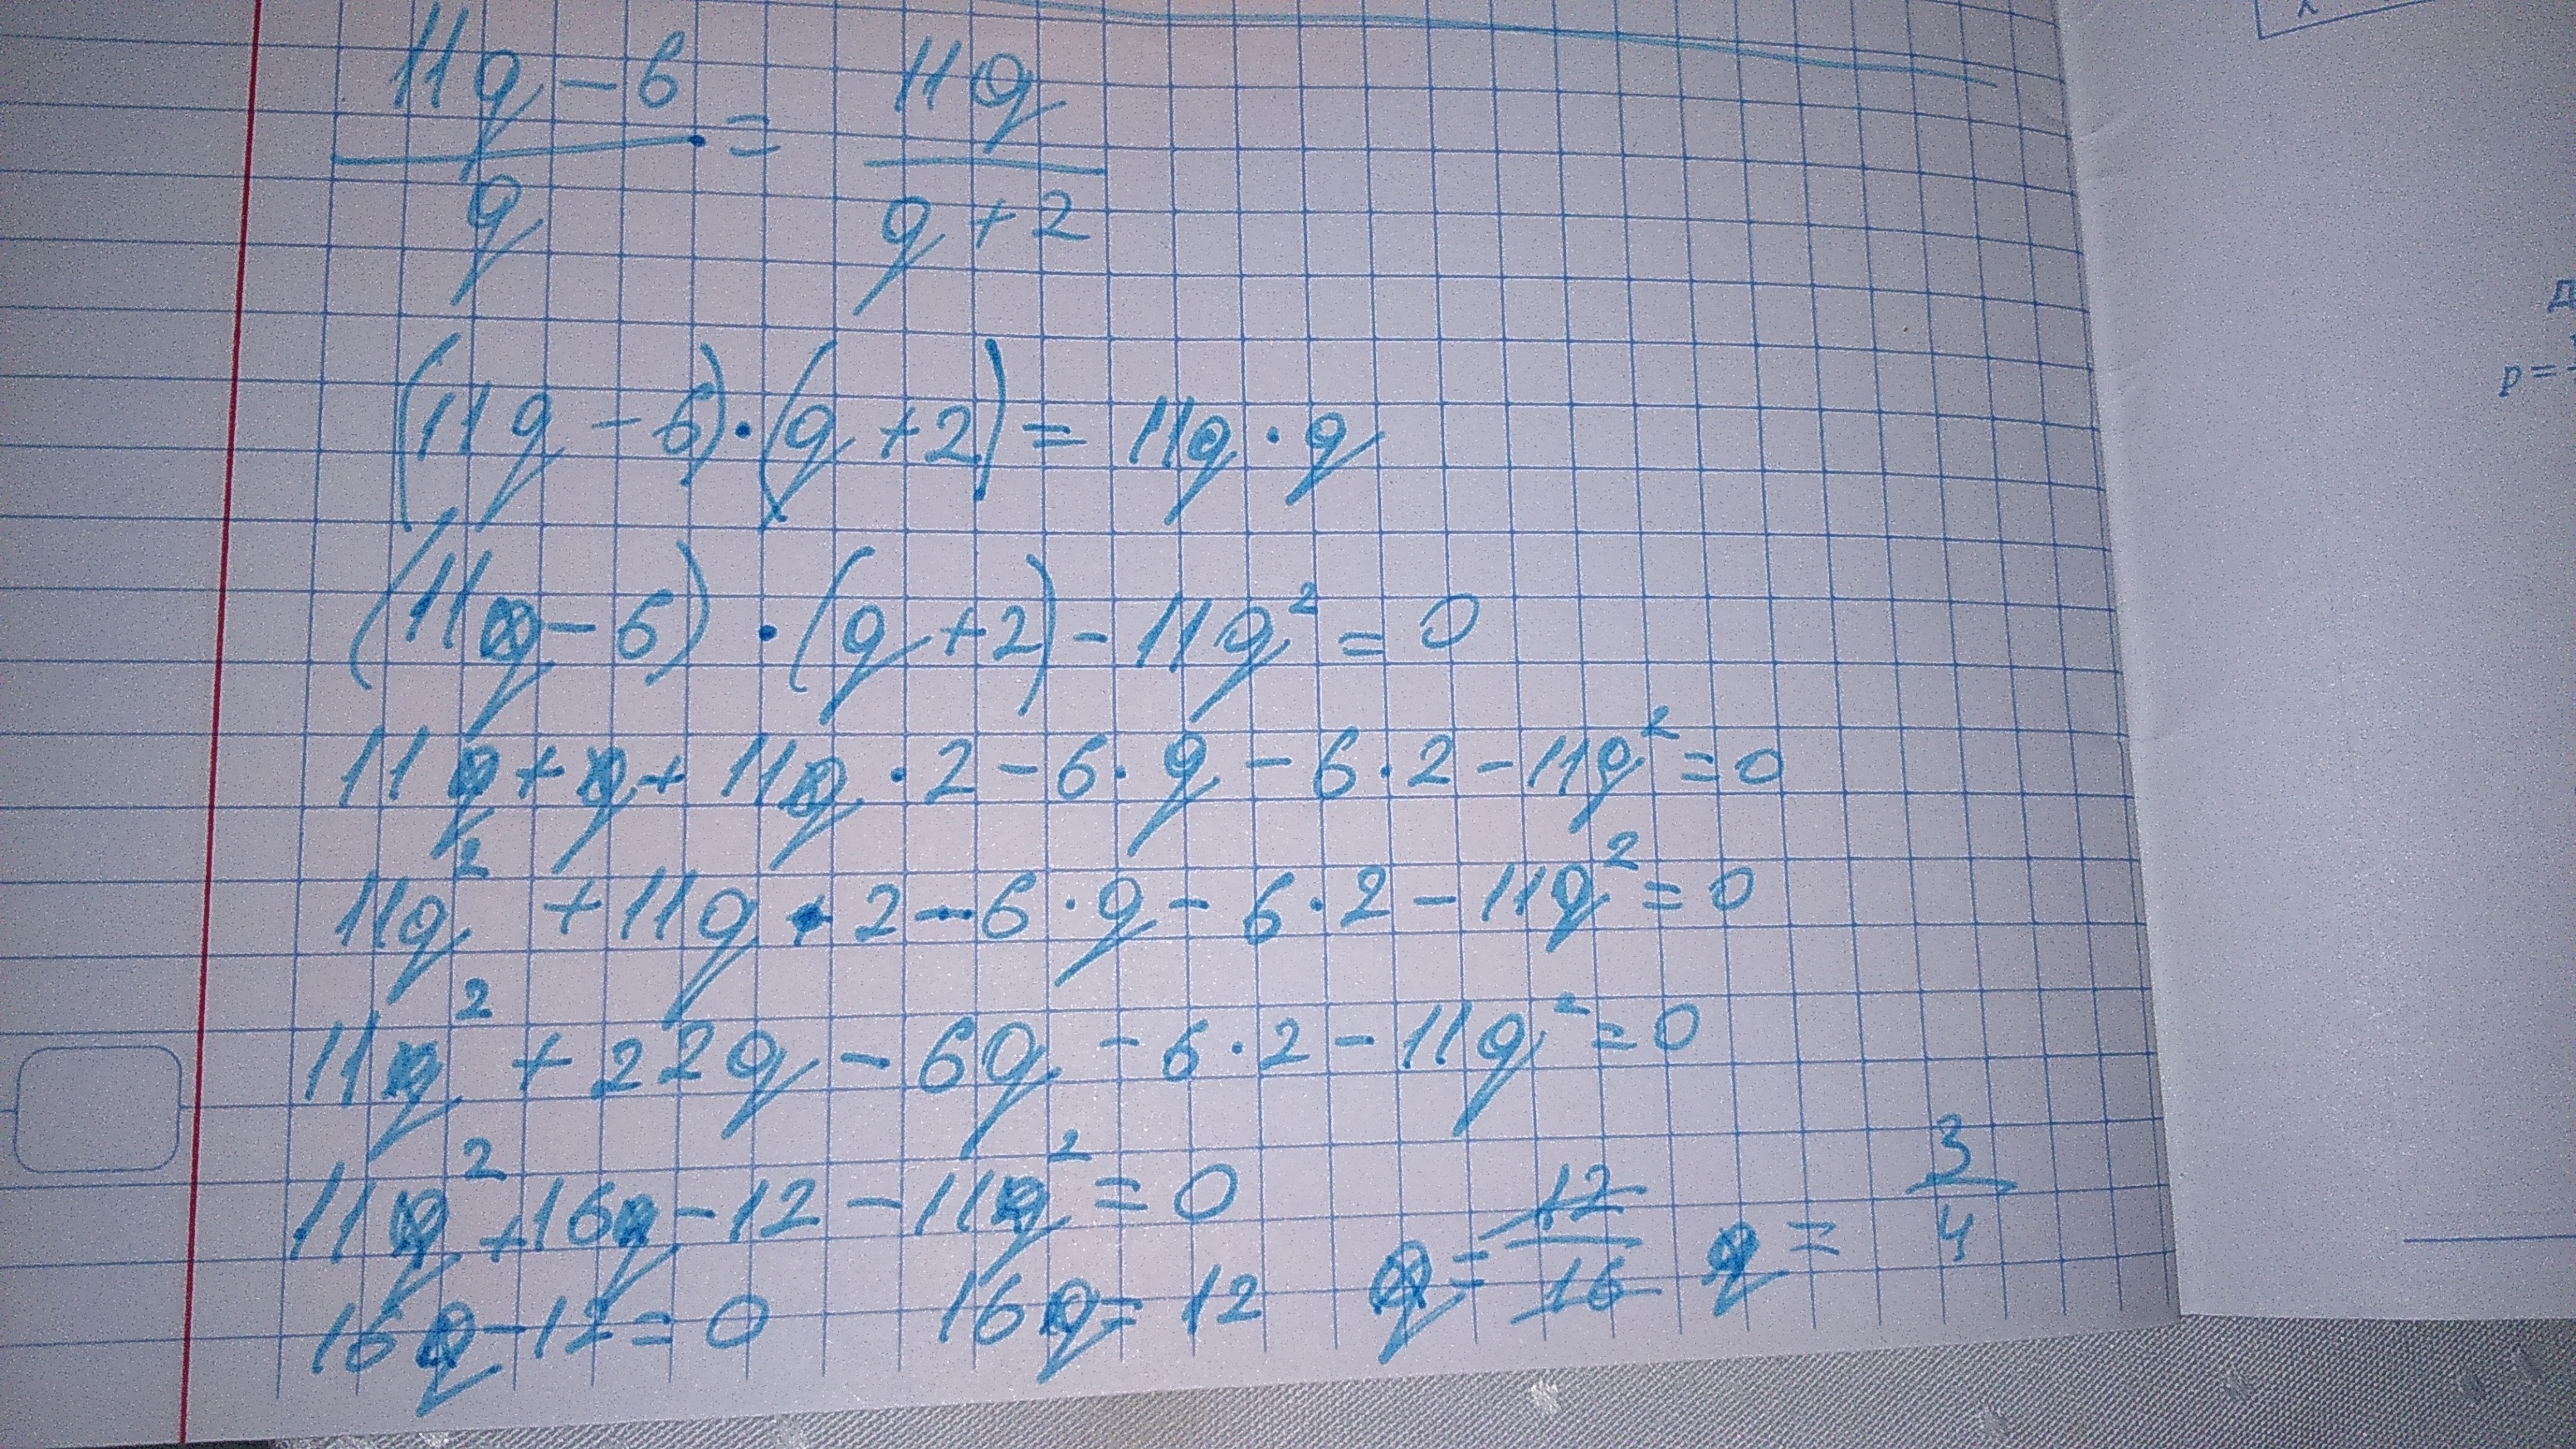 (11q - 6)/q = 11q/(q + 2)
(11q - 6) · (q + 2) = 11q · q
(11q - 6) · (q + 2) - 11q² = 0
11q + q + 11q · 2 - 6 · q - 6 · 2 - 11q² = 0
11q² + 11q · 2 - 6 · q - 6 · 2 - 11q² = 0
11q² + 22q - 6q - 6 · 2 - 11q² = 0
11q² + 16q - 12 - 11q² = 0
16q - 12 = 0 16q = 12 q = 12/16 q = 3/4
p =